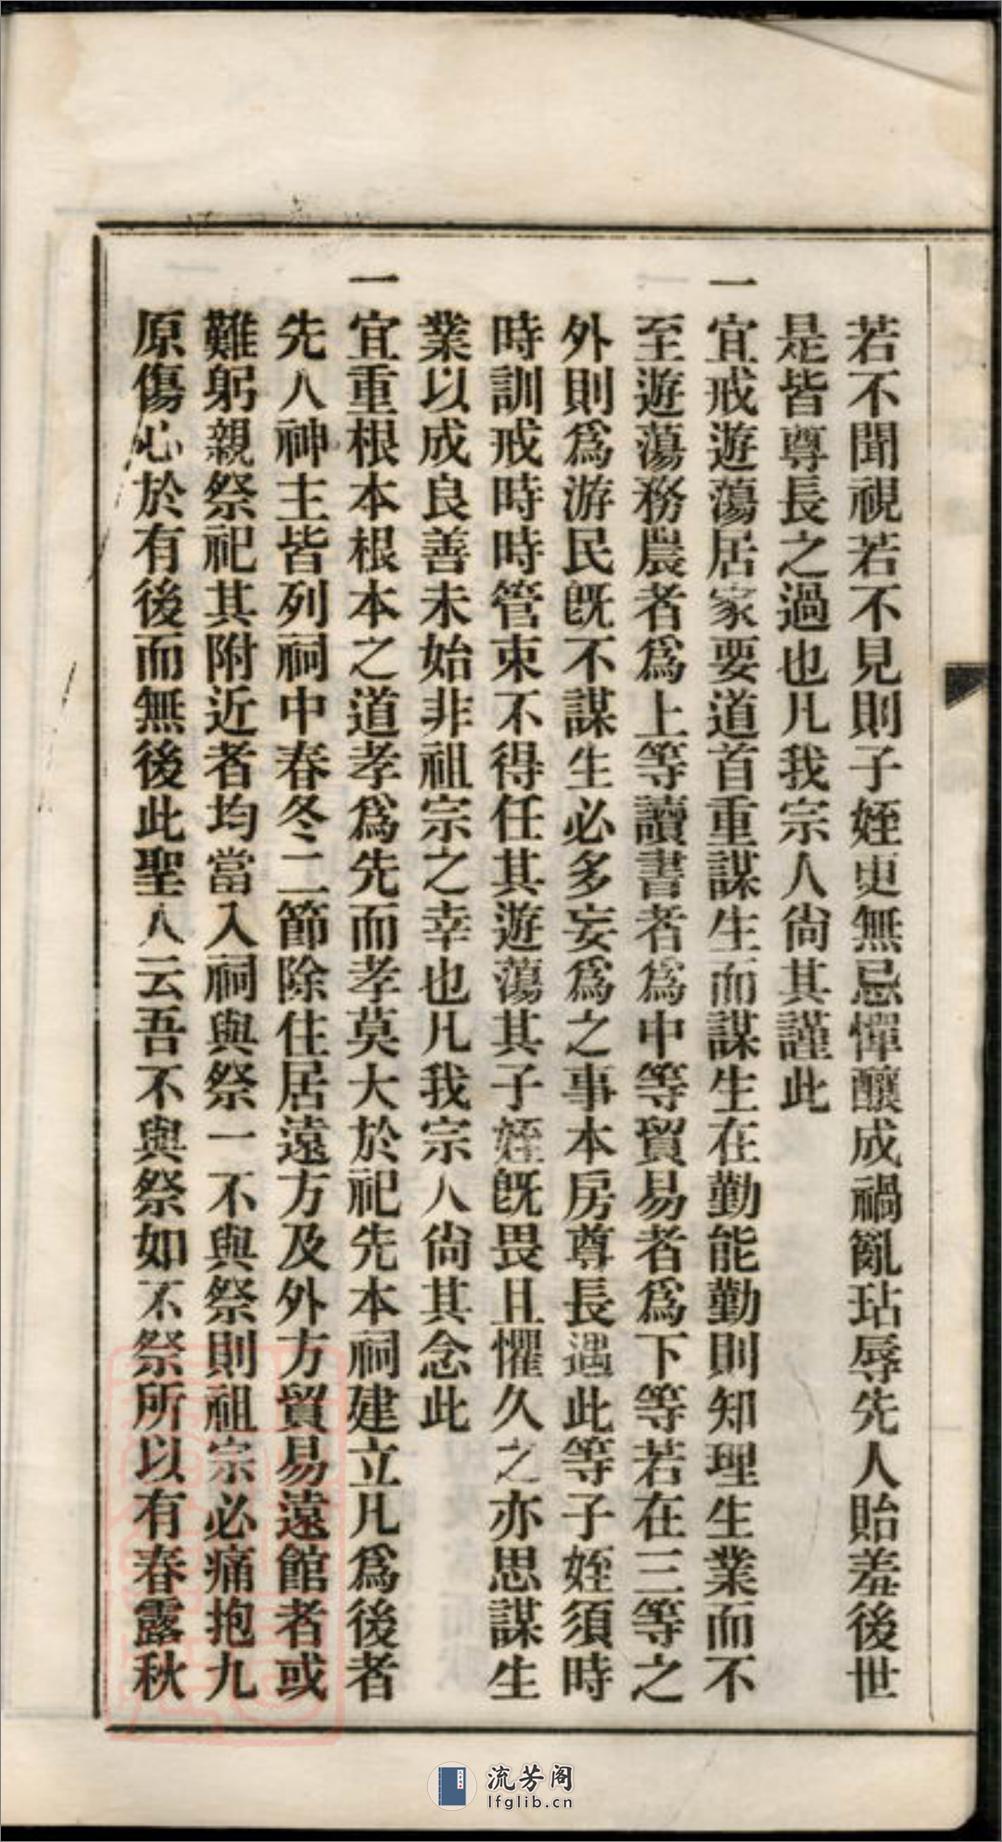 若不聞視若不見則子姪更無忌憚釀成禍亂玷辱先人貽羞後世
是皆尊長之過也凡我宗人尙其謹此
一宜戒遊蕩居家要道首重謀生而謀生在勤能勤則知理生業而不
至遊蕩務農者爲上等讀書者爲中等貿易者爲下等若在三等之
外則爲游民旣不謀生必多妄爲之事本房尊長遇此等子姪須時
時訓戒時時管束不得任其遊蕩其子姪旣畏且懼久之亦思謀生
業以成良善未始非祖宗之幸也凡我宗人尙其念此
一宜重根本根本之道孝爲先而孝莫大於祀先本祠建立凡爲後者
先人神主皆列祠中春冬二節除住居遠方及外方貿易遠館者或
難躬親祭祀其附近者均當入祠與祭一不與祭則祖宗必痛抱九
原傷心於有後而無後此聖人云吾不與祭如不祭所以有春露秋
流芳阁
lfglib.cn